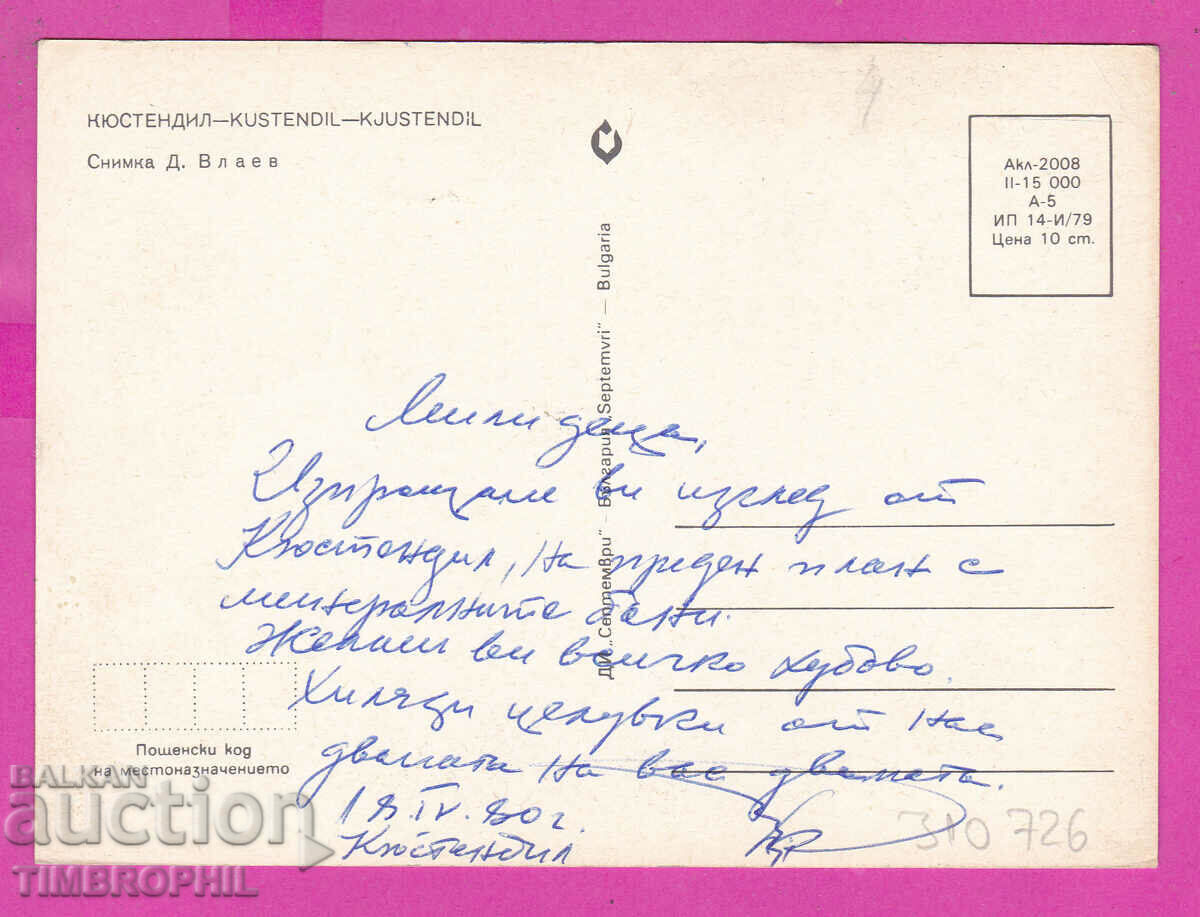 КЮСТЕНДИЛ—KUSTENDIL—KJUSTENDIL
Снимка Д. Влаев
Акл-2008
II-15 000
А-5
ИП 14-И/79
Цена 10 ст.
ДИ „Септември" — България „Septemvri" — Bulgaria
Мили деца,
Изпращаме ви изглед от
Кюстендил, на преден план с
минералните бани.
Желаем ви всичко хубаво.
Хиляди целувки от нас
двамата на вас двамата.
18.IV.80г.
Кюстендил
Пощенски код
на местоназначението
310 726
BALKAN
auction
TIMBROPHIL